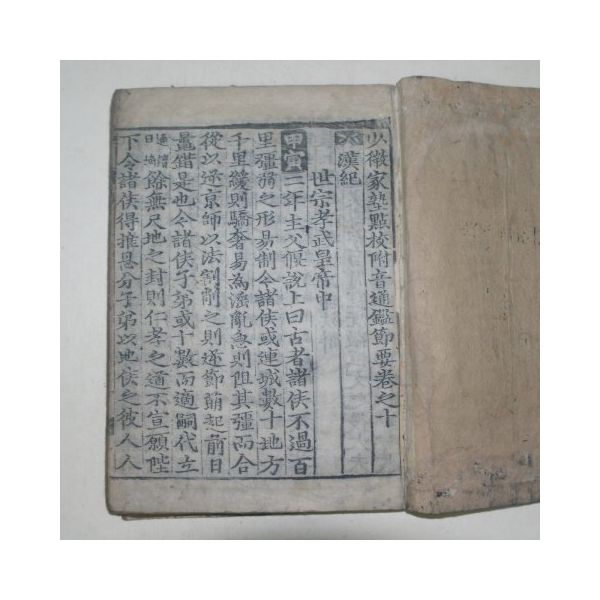 少微家塾點校附音通鑑節要卷之十
漢紀
世宗孝武皇帝中
甲寅二年主父偃說上曰古者諸侯不過百
里彊弱之形易制今諸侯或連城數十地方
千里緩則驕奢易為滛亂急則阻其彊而合
從以逆京師以法割削之則逆節萌起前日
鼂錯是也今諸侯子弟或十數而適嗣代立
餘無尺地之封則仁孝之道不宣願陛
下令諸侯得推恩分子弟以地侯之彼人人